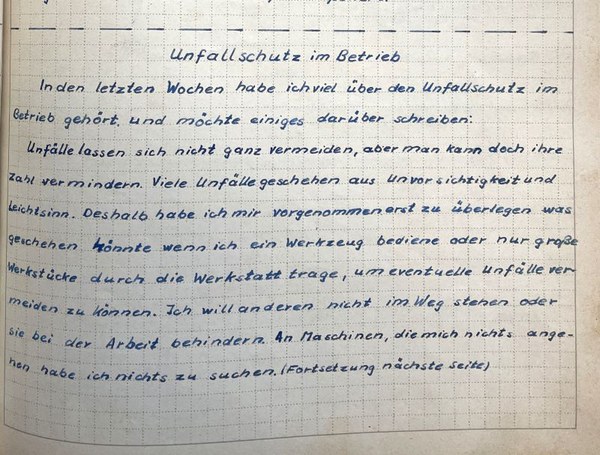 Unfallschutz im Betrieb
In den letzten Wochen habe ich viel über den Unfallschutz im
Betrieb gehört. und möchte einiges darüber schreiben:
Unfälle lassen sich nicht ganz vermeiden, aber man kann doch ihre
Zahl vermindern. Viele Unfälle geschehen aus Unvorsichtigkeit und
Leichtsinn. Deshalb habe ich mir vorgenommen erst zu überlegen was
geschehen könnte wenn ich ein Werkzeug bediene oder nur große
Werkstücke durch die Werkstatt trage, um eventuelle Unfälle ver-
meiden zu können. Ich will anderen nicht im Weg stehen oder
sie bei der Arbeit behindern. An Maschinen, die mich nichts ange-
hen habe ich nichts zu suchen. (Fortsetzung nächste Seite)